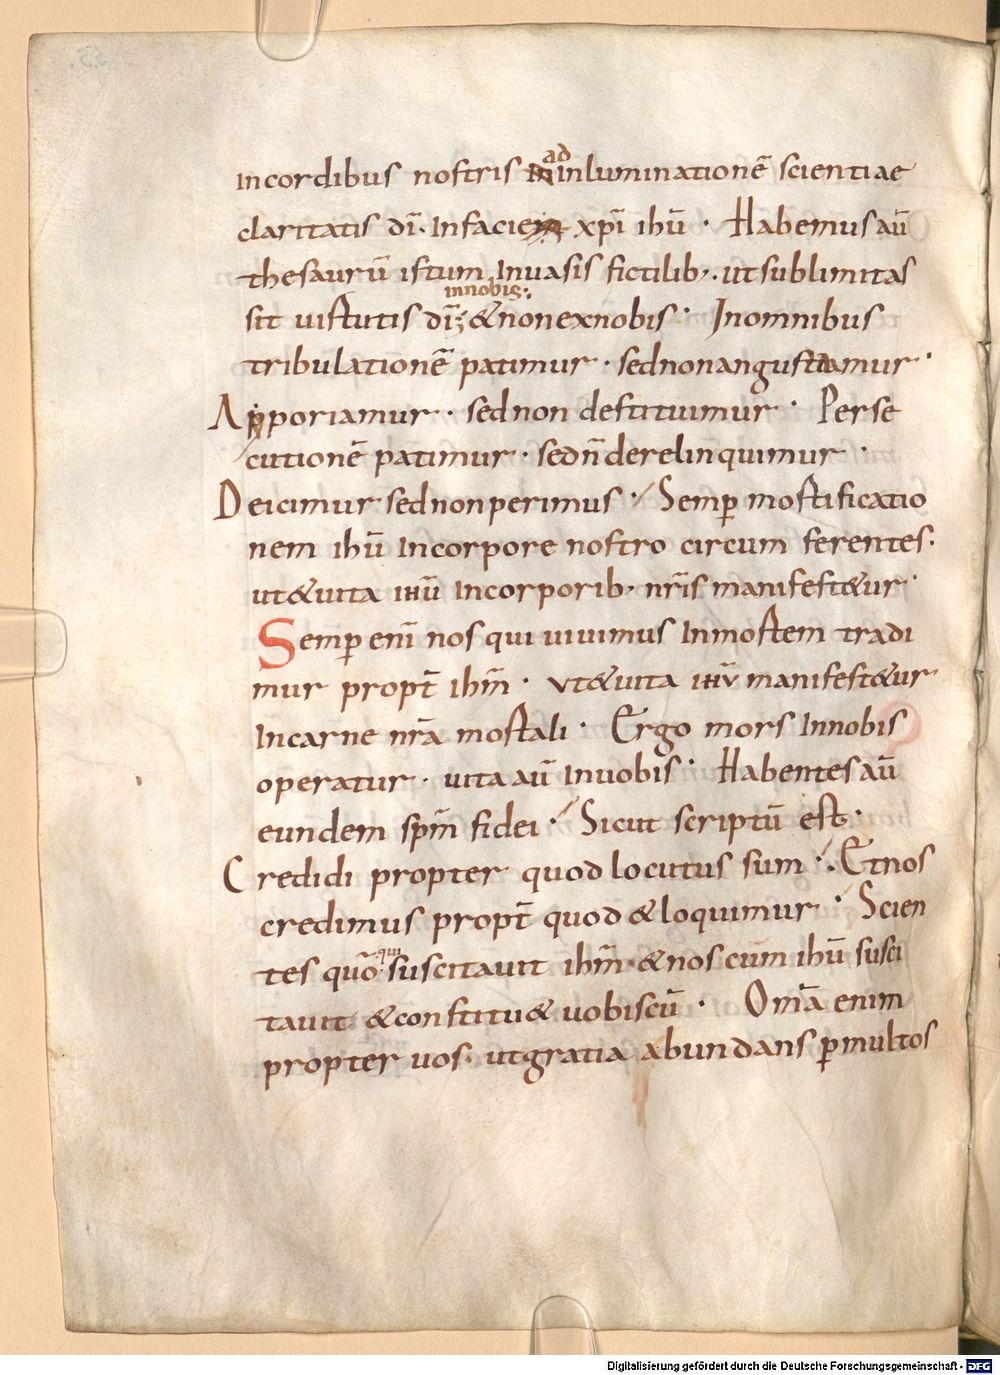 Incordibus nostris ad inluminationē scientiae
claritatis dī. Infacie xp̄i ihū · Habemus aū
thesaurū istum Inuasis fictilib;. ut sublimitas
innobis:,
sit uirtutis dī; &nonexnobis · Inomnibus
tribulationē patimur · sednonangustiamur ·
Apporiamur · sednon destituimur · Perse
cutionē patimur · sedn̄derelinquimur ·
Deicimur sednonperimus · Semꝑ mortificatio
nem ihū Incorpore nostro circum ferentes.
ut&uita ihū Incorporib; nr̄is manifest&ur ·
Semꝑ enī nos qui uiuimus Inmortem tradi
mur propt̄ ihm̄ · ut&uita ihū manifest&ur
Incarne nr̄a mortali · Ergo mors Innobis
operatur · uita aū Inuobis · Habentes aū
eundem spm̄ fidei · Sicut scriptū est ·
Credidi propter quod locutus sum · Etnos
credimus propt̄ quod &loquimur · Scien
tes quō qui suscitauit ihm̄ · &nos cum ihū susci
tauit &constitu& uobiscū · Om̄a enim
propter uos. utgratia abundans ꝑmultos
Digitalisierung gefördert durch die Deutsche Forschungsgemeinschaft - DFG